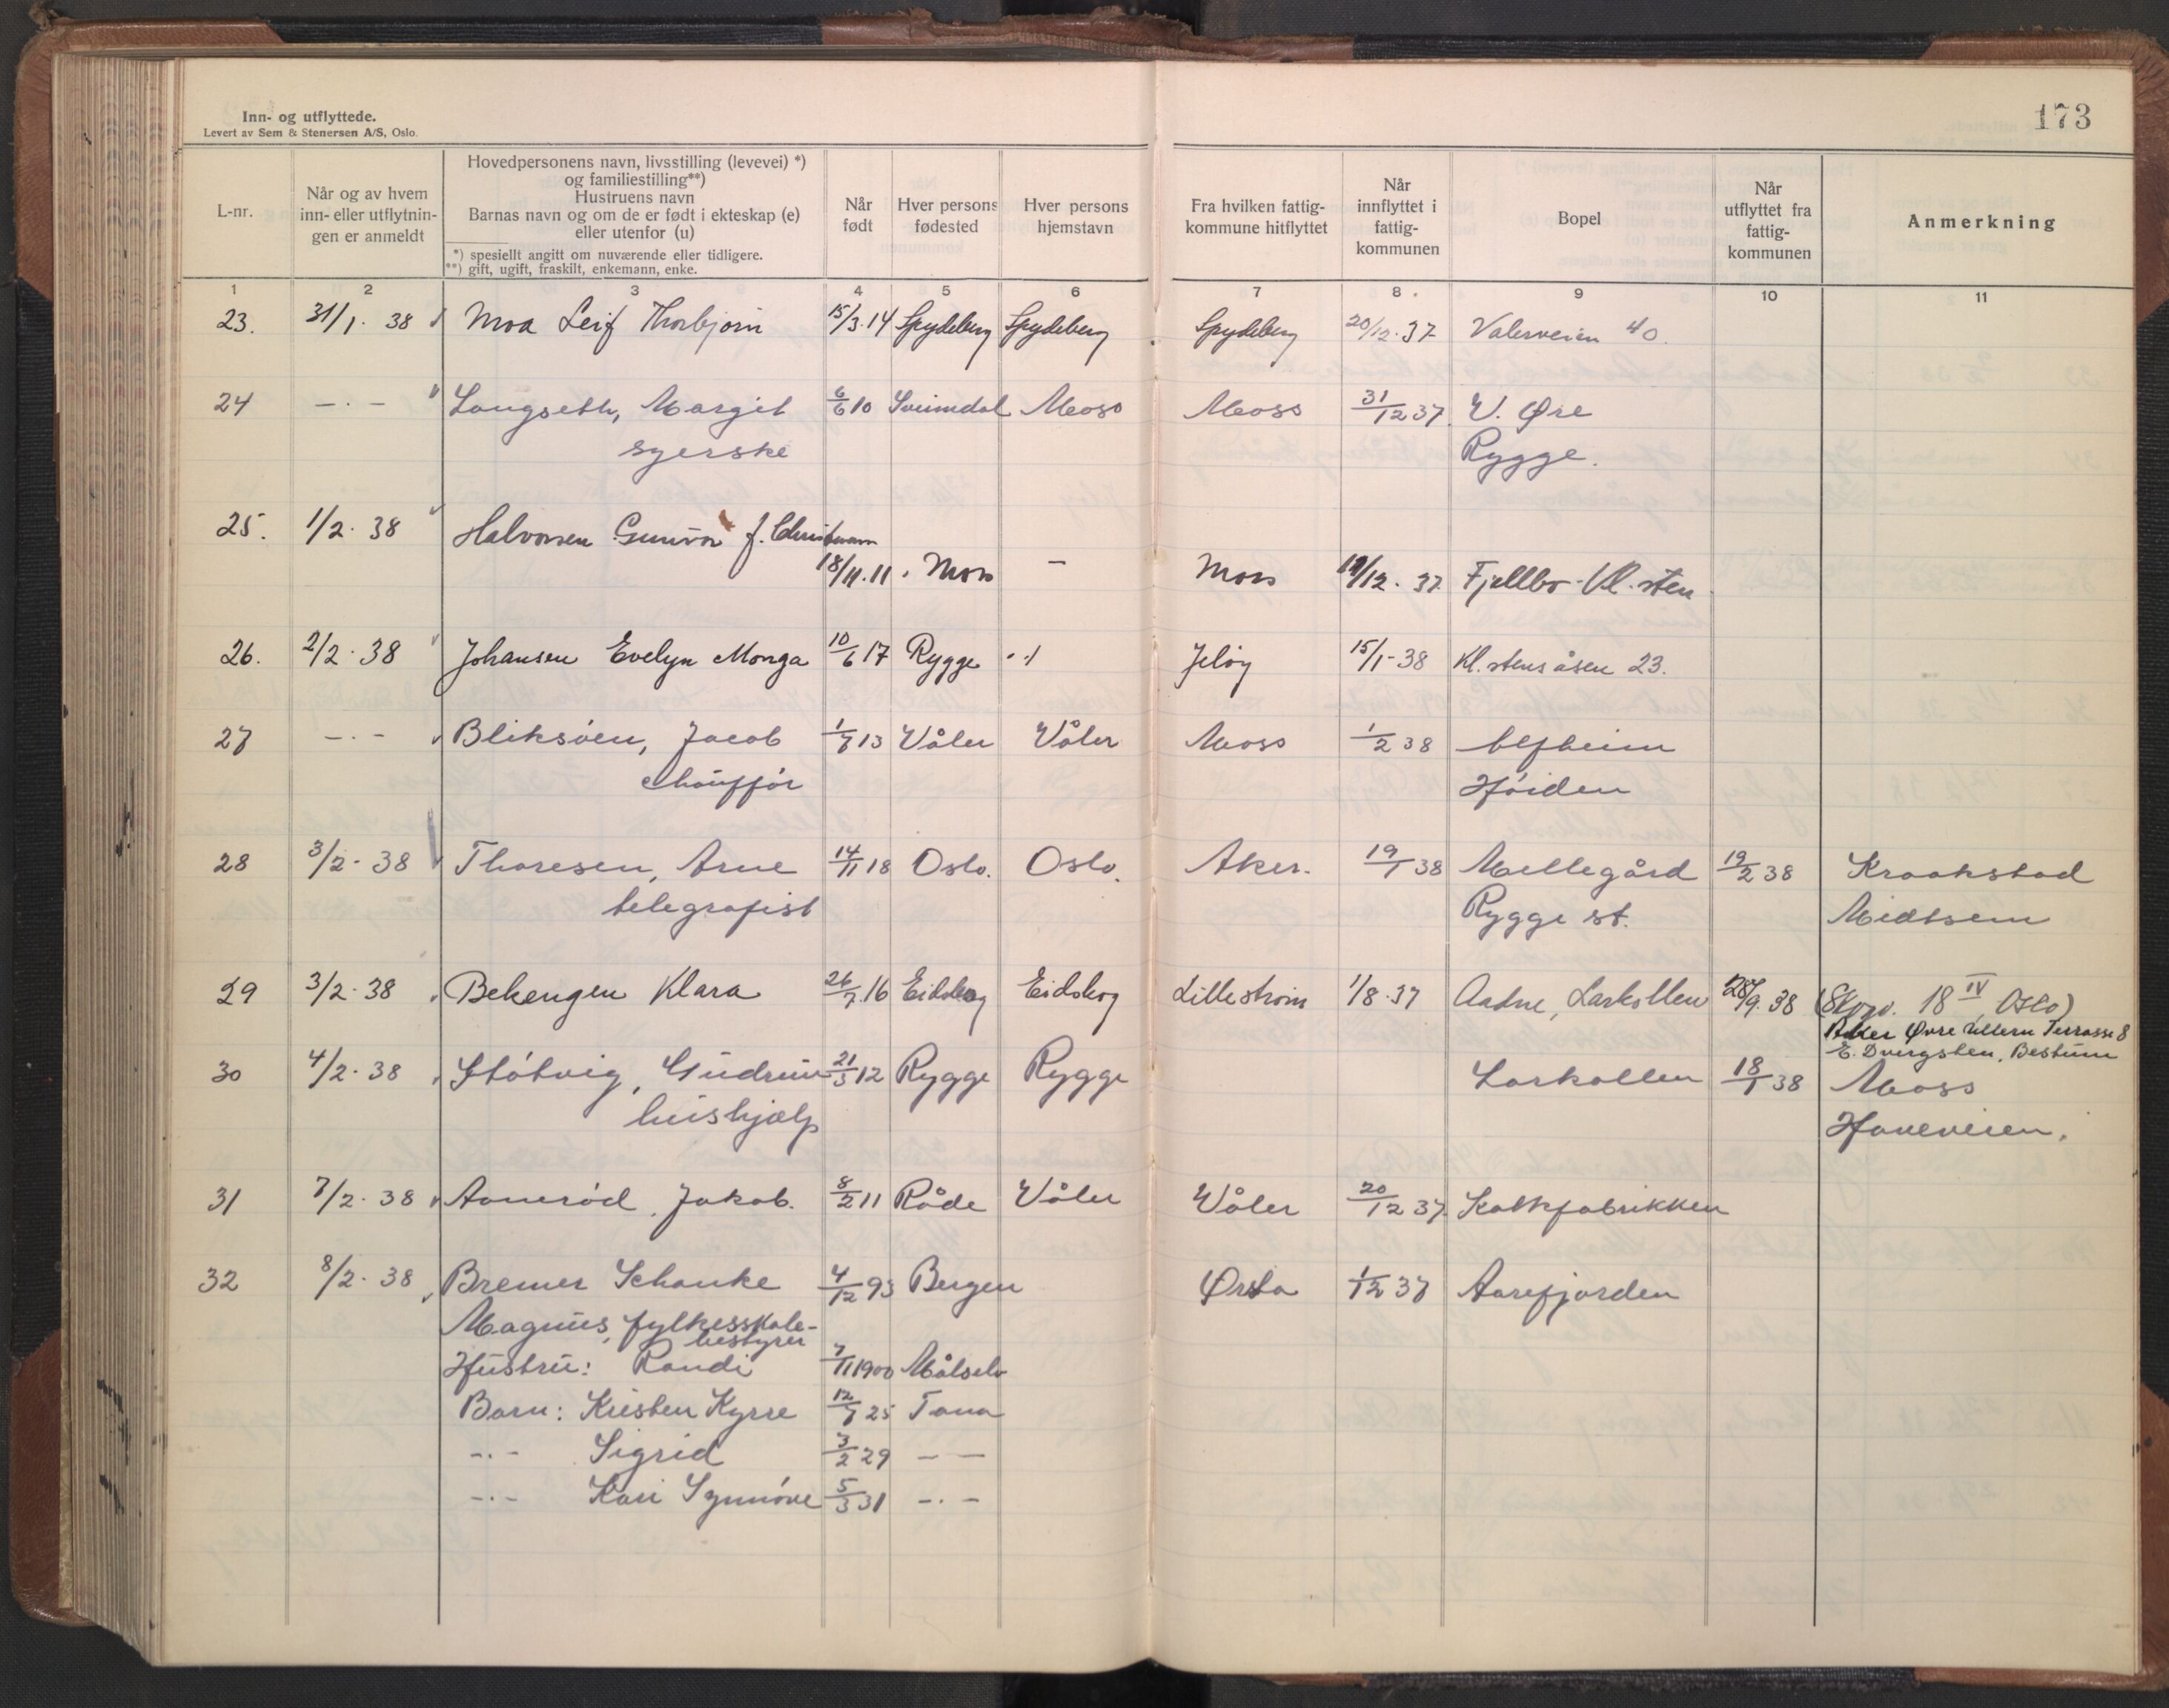 Inn- og utflyttede.
Levert av Sem & Stenersen A/S, Oslo.
173
L-nr.
Når og av hvem
inn- eller utflytnin-
gen er anmeldt
Hovedpersonens navn, livsstilling (levevei) *)
og familiestilling**)
Hustruens navn
Barnas navn og om de er født i ekteskap (e)
eller utenfor (u)
*) spesiellt angitt om nuværende eller tidligere.
**) gift, ugift, fraskilt, enkemann, enke.
Når
født
Hver persons
fødested
Hver persons
hjemstavn
Fra hvilken fattig-
kommune hitflyttet
Når
innflyttet i
fattig-
kommunen
Bopel
Når
utflyttet fra
fattig-
kommunen
Anmerkning
1 2 3 4 5 6 7 8 9 10 11
23. 31/1. 38 Moa Leif Thorbjørn 15/3.14 Spydeberg Spydeberg Spydeberg 20/12.37 Valerveien 40.
24 -.- Langseth, Margit 6/6 10 Svinndal Moss Moss 31/12 37. V. Øre
syerske Rygge.
25. 1/2. 38 Halvorsen Gunvor f. Christensen
18/11.11. Moss - Moss /12. 37. Fjellbo - Kl. sten
26. 2/2. 38 Johansen Evelyn Monga 10/6 17 Rygge Jeløy 15/1-38 Kl. stensåsen 23.
27 -.- Bliksøen, Jacob 1/7 13 Våler Våler Moss 1/2 38 Alfheim
chauffør Høiden
28 3/2. 38 Thoresen, Arne 14/11 18 Oslo. Oslo. Aker. 19/1 38 Mellegård 19/2 38 Kraakstad
telegrafist Rygge st. Midtsem
29 3/2. 38 Bekengen Klara 26/7.16 Eidskog Eidskog Lillestrøm 1/8.37 Aadne, Larkollen 28/9.38 (Skogv. 18 IV, Oslo)
Aker Øvre Ullern Terrasse 8
E. Dvergsten, Bestum
30 4/2. 38 Støtvig, Gudrun 21/3 12 Rygge Rygge Larkollen 18/1 38 Moss
hushjælp Haveveien.
31 7/2. 38 Aamerød, Jakob. 8/2 11 Råde Våler Våler 20/12 37. Kalkfabrikken
32 8/2. 38 Bremer Schanke 4/12 93 Bergen Ørsta 1/12 37 Aarefjorden
Magnus, fylkesskole-
bestyrer
Hustru: Randi 7/11 1900 Målselv
Barn: Kristen Kyrre 12/7 25 Tana
-.- Sigrid 3/2 29 - -
-.- Kari Synnøve 5/3 31 -.-